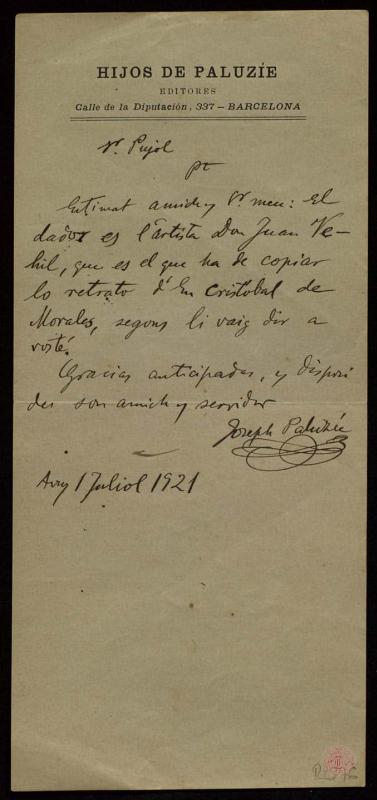 HIJOS DE PALUZÍE
EDITORES
Calle de la Diputación, 337 – BARCELONA
Sr. Pujol
pt
Estimat amich y Sr. meu: El
dador es l'artista Don Juan Ve-
hil, que es el que ha de copiar
lo retrato d'En Cristobal de
Morales, segons li vaig dir a
vosté.
Gracias anticipadas, y disposi
del son amich y servidor
Joseph Paluzíe
Avuy 1 Juliol 1921